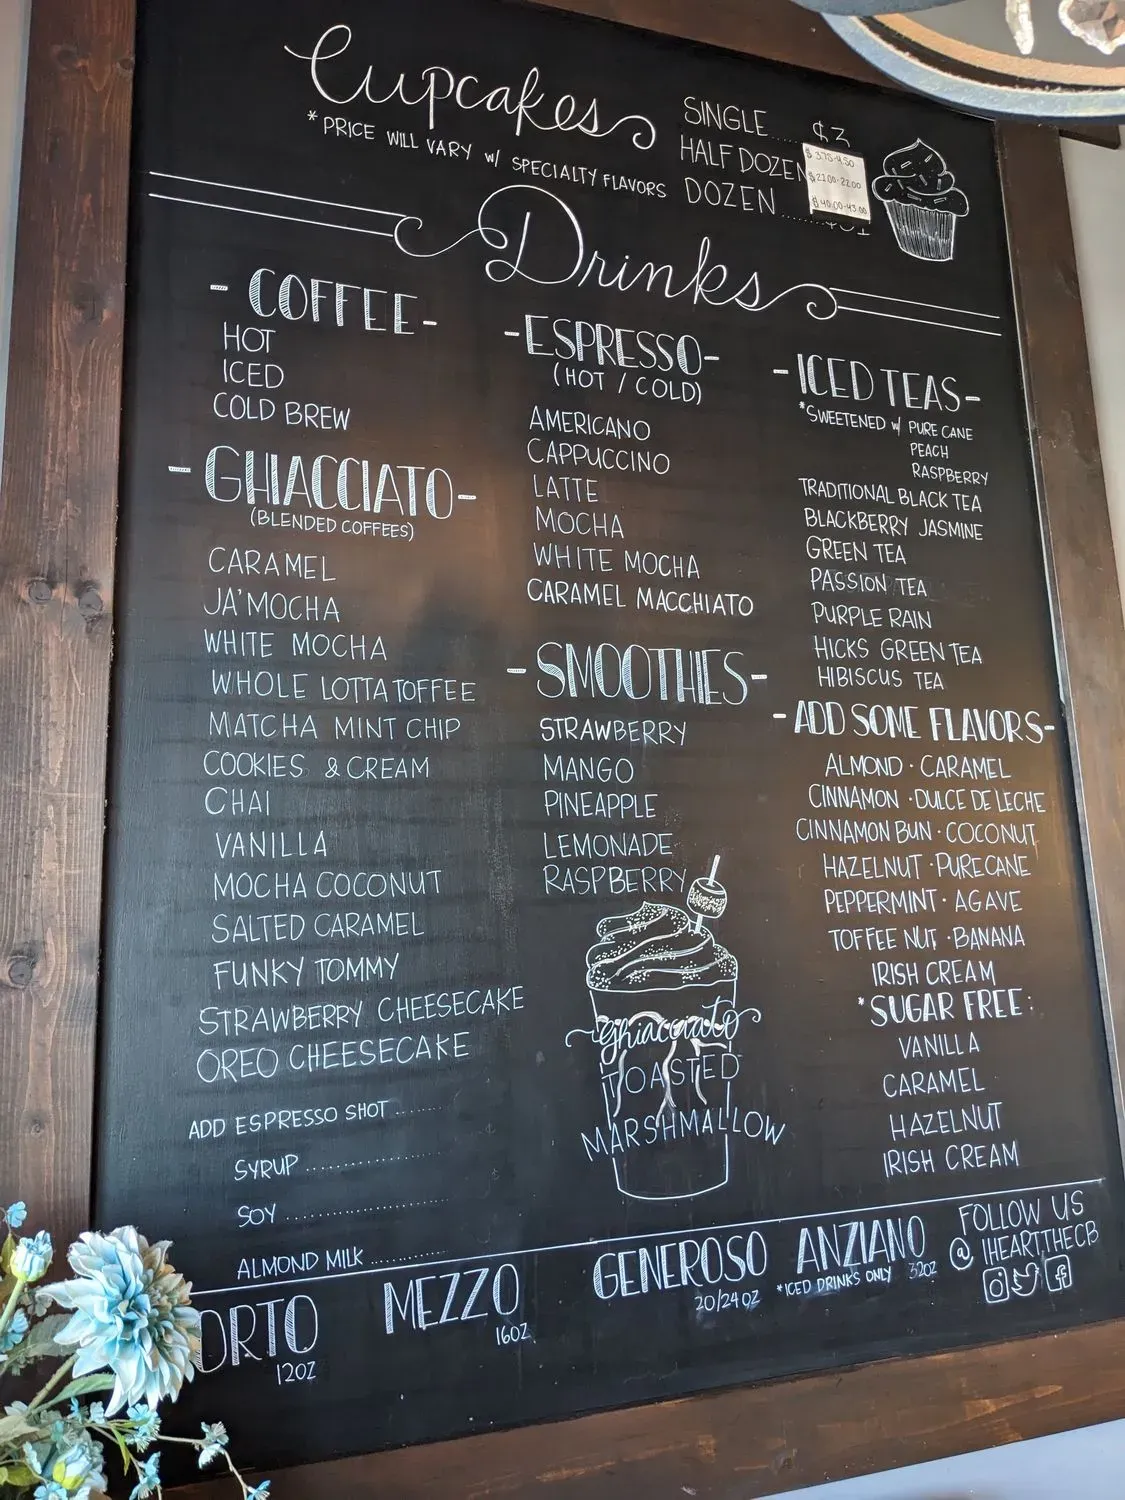 Cupcakes
* PRICE WILL VARY W/ SPECIALTY FLAVORS
SINGLE..... $3
HALF DOZEN
DOZEN ........
$ 3.75-4.50
$ 21.00-22.00
$ 40.00-43.00
Drinks
- COFFEE -
HOT
ICED
COLD BREW
- GHIACCIATO -
(BLENDED COFFEES)
CARAMEL
JA'MOCHA
WHITE MOCHA
WHOLE LOTTA TOFFEE
MATCHA MINT CHIP
COOKIES & CREAM
CHAI
VANILLA
MOCHA COCONUT
SALTED CARAMEL
FUNKY TOMMY
STRAWBERRY CHEESECAKE
OREO CHEESECAKE
ADD ESPRESSO SHOT .......
SYRUP ..................
SOY .....................
ALMOND MILK ............
- ESPRESSO -
(HOT / COLD)
AMERICANO
CAPPUCCINO
LATTE
MOCHA
WHITE MOCHA
CARAMEL MACCHIATO
- SMOOTHIES -
STRAWBERRY
MANGO
PINEAPPLE
LEMONADE
RASPBERRY
Ghiacciato
TOASTED
MARSHMALLOW
- ICED TEAS -
*SWEETENED W/ PURE CANE
PEACH
RASPBERRY
TRADITIONAL BLACK TEA
BLACKBERRY JASMINE
GREEN TEA
PASSION TEA
PURPLE RAIN
HICKS GREEN TEA
HIBISCUS TEA
- ADD SOME FLAVORS -
ALMOND · CARAMEL
CINNAMON · DULCE DE LECHE
CINNAMON BUN · COCONUT
HAZELNUT · PURE CANE
PEPPERMINT · AGAVE
TOFFEE NUT · BANANA
IRISH CREAM
*SUGAR FREE:
VANILLA
CARAMEL
HAZELNUT
IRISH CREAM
ORTO
12OZ
MEZZO
16OZ
GENEROSO
20/24OZ
ANZIANO
*ICED DRINKS ONLY 32OZ
FOLLOW US
@ IHEARTTHECB